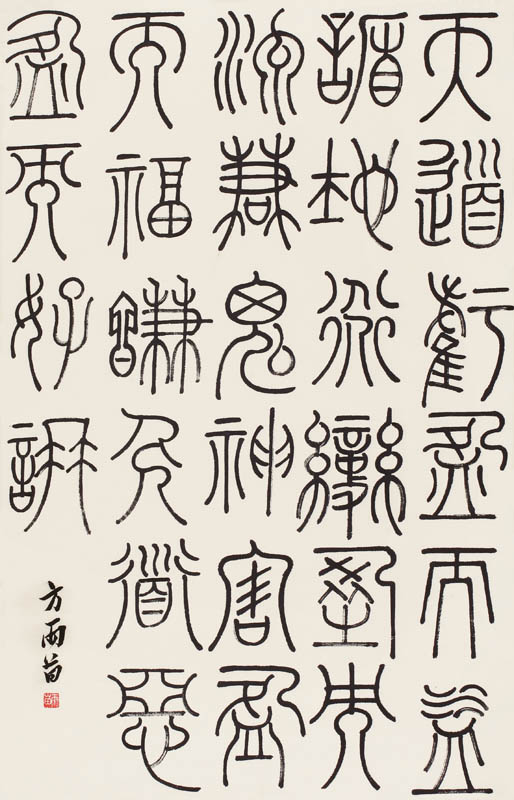 天道虧盈而益
謙地道變盈而
流謙鬼神害盈
而福謙人道惡
盈而好謙
方雨